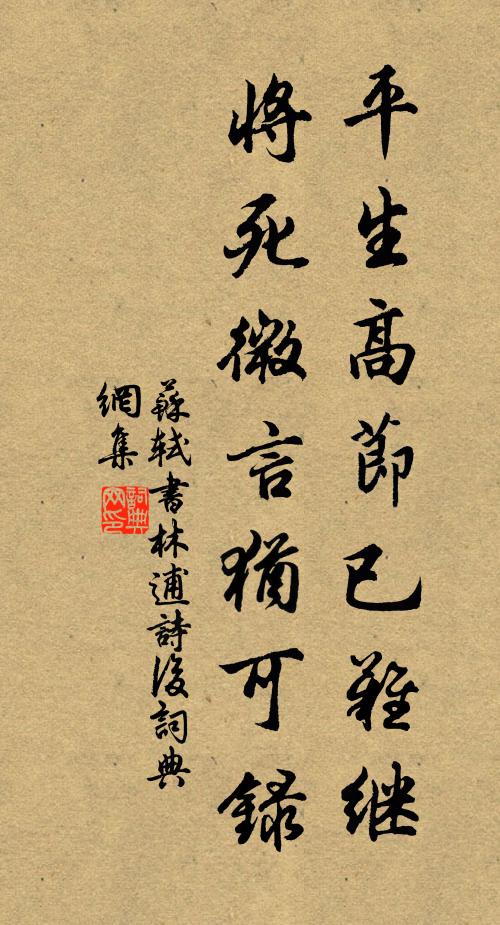 平生高節已難继
將死微言猶可錄
蘇軾書林逋詩後詞典
網集
詞典
网印